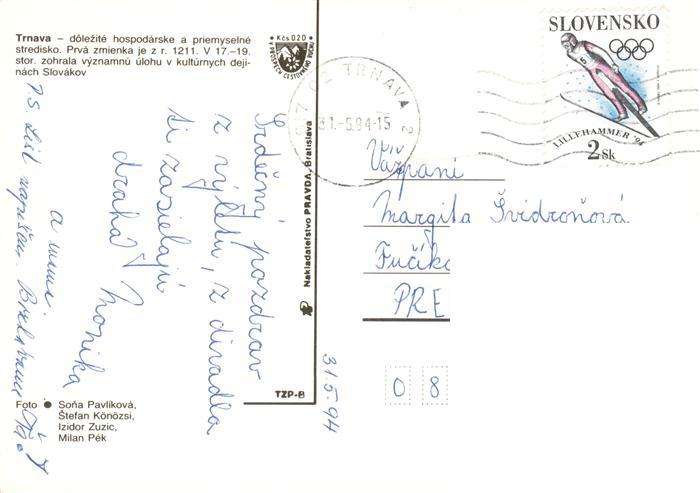 Trnava – dôležité hospodárske a priemyselné
stredisko. Prvá zmienka je z r. 1211. V 17.–19.
stor. zohrala významnú úlohu v kultúrnych deji-
nách Slovákov
Kčs 0,20
Srdečný pozdrav
z výletu, z divadla
ti zasielajú
drahá
Monika
a mimi.
PS
Foto ● Soňa Pavlíková,
Štefan Könözsi,
Izidor Zuzic,
Milan Pék
Nakladateľstvo PRAVDA, Bratislava
TZP-8
31.5.94
TRNAVA 2
31.-5.94-15
SLOVENSKO
5
LILLEHAMMER '94
2 Sk
Vážpani
Margita Švidroňová
Fučík
PRE
0 8